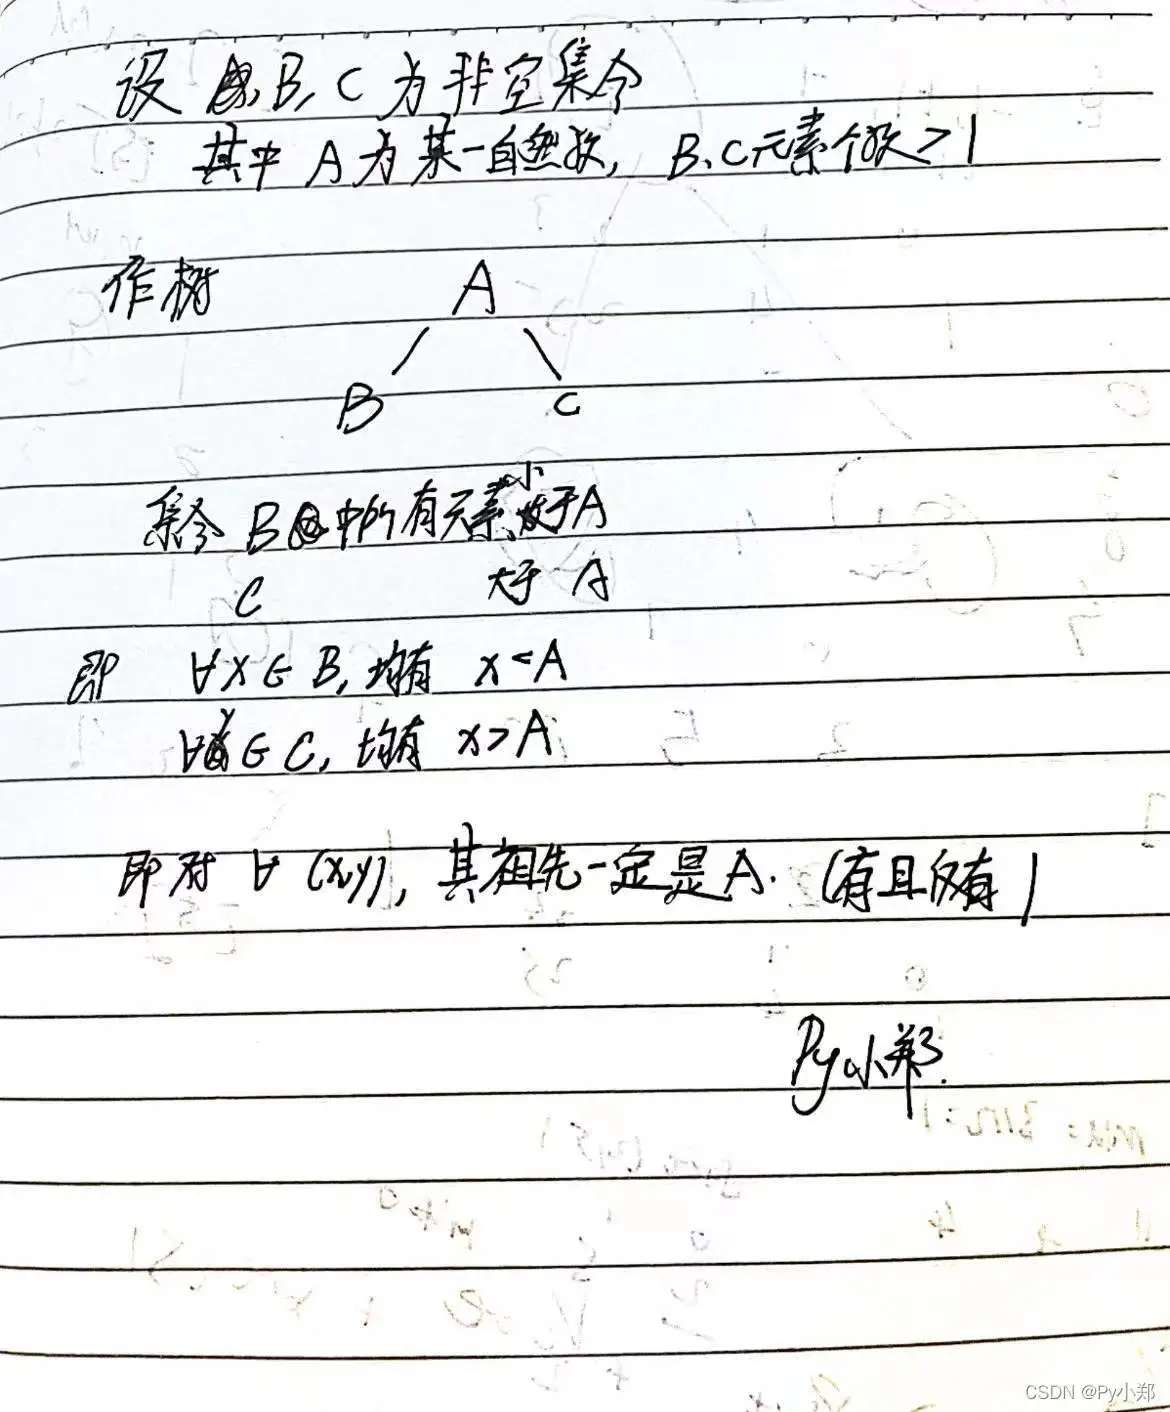 设 B, C 为非空集合
其中 A 为某一自然数, B、C元素个数>1
作树 A
B C
集合 B 中所有元素小于A
C 大于 A
即 ∀x∈B, 均有 x<A
∀y∈C, 均有 x>A
即对 ∀ (x,y), 其祖先一定是A. (有且仅有)
Py小郑.
CSDN @Py小郑